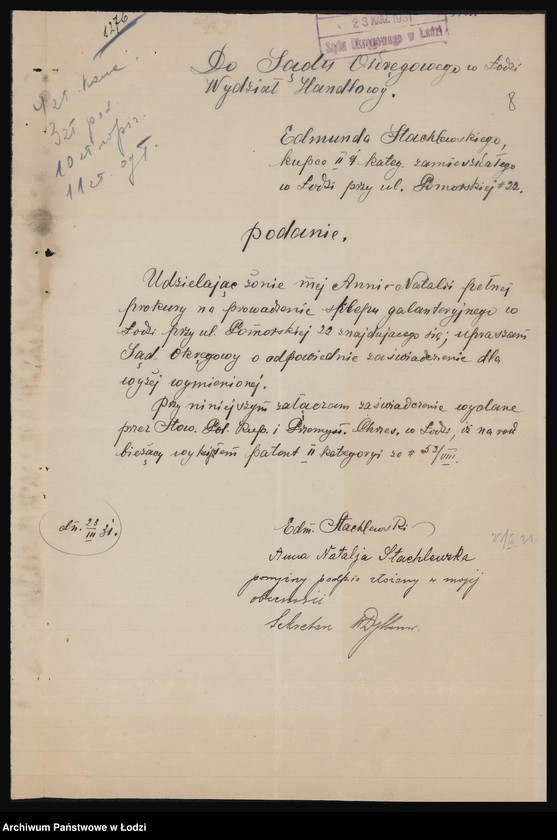 1276
23 MAR. 1931
Sądu Okręgowego w Łodzi
4 zł. kanc.
3 zł pod.
10 zł wpis.
11 zł. ogł.
8
Do Sądu Okręgowego w Łodzi
Wydział Handlowy.
Edmunda Stachlewskiego,
kupca II kateg. zamieszkałego
w Łodzi przy ul. Pomorskiej # 22.
podanie.
Udzielając żonie mej Annie-Natalii pełnej
prokury na prowadzenie sklepu galanteryjnego w
Łodzi przy ul. Pomorskiej 22 znajdującego się, upraszam
Sąd Okręgowy o odpowiednie zaświadczenie dla
wyżej wymienionej.
Przy niniejszym załączam zaświadczenie wydane
przez Stow. Pol. Kup. i Przemysł. Chrześ. w Łodzi, iż na rok
bieżący wykupiłem patent II kategoryi za # 53/VIII.
dn. 23/III 31.
Edm. Stachlewski
Anna Natalja Stachlewska
powyższy podpis złożony w mojej
obecności
Sekretarz
Archiwum Państwowe w Łodzi